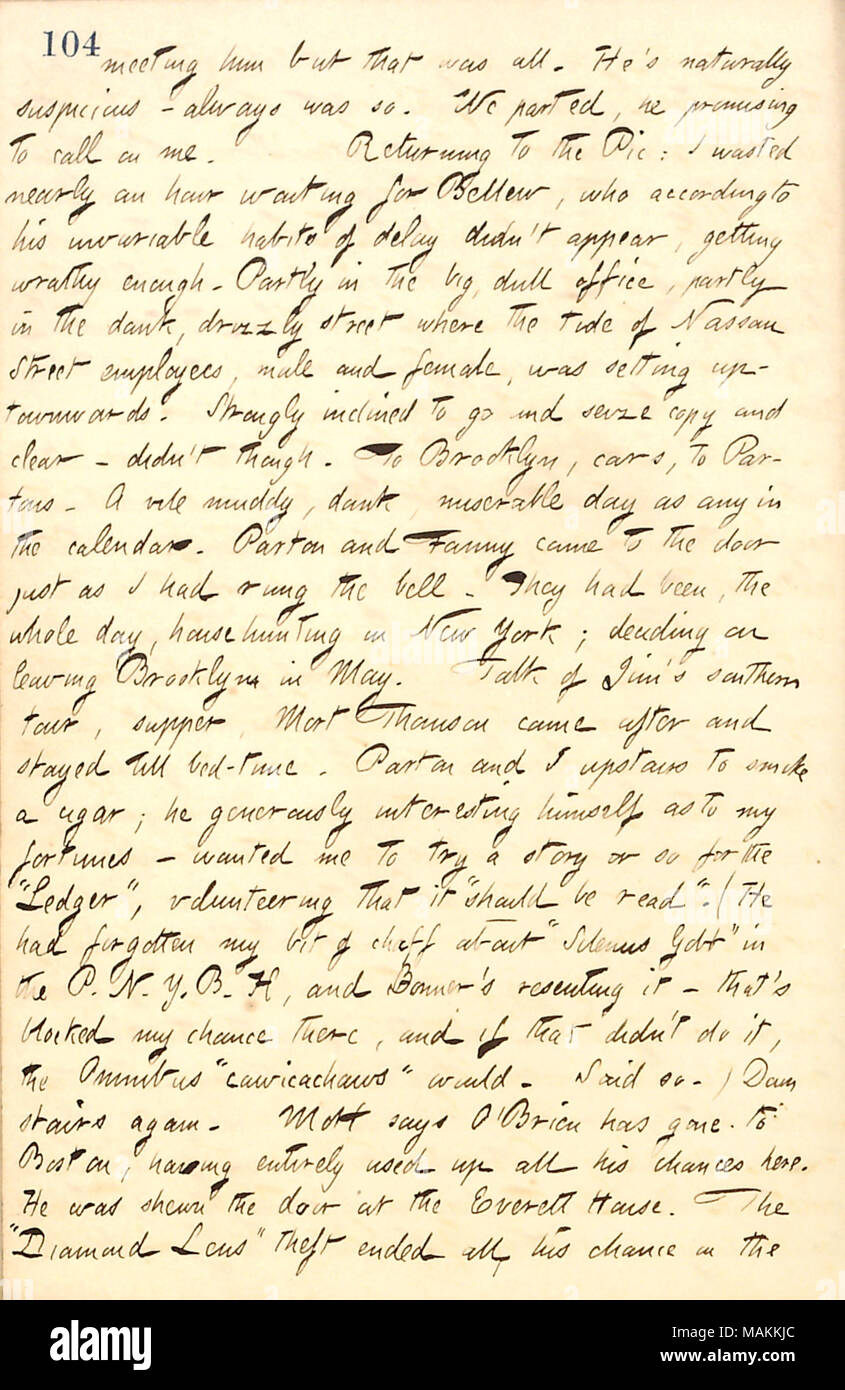 104
meeting him but that was all. He's naturally
suspicious - always was so. We parted, he promising
to call on me. Returning to the Pic: I wasted
nearly an hour waiting for Bellew, who according to
his invariable habits of delay didn't appear, getting
wrathy enough. Partly in the big, dull office, partly
in the dank, drizzly street where the tide of Nassau
Street employees, male and female, was setting up-
townwards. Strongly inclined to go and seize copy and
clear - didn't though. To Brooklyn, cars, to Par-
tons. A vile muddy, dank, miserable day as any in
the calendar. Parton and Fanny came to the door
just as I had rung the bell. They had been, the
whole day, house hunting in New York; deciding on
leaving Brooklyn in May. Talk of Jim's southern
tour, supper, Mort Thomson came after and
stayed till bed-time. Parton and I upstairs to smoke
a cigar; he generously interesting himself as to my
fortunes - wanted me to try a story or so for the
"Ledger", volunteering that it "should be read". (He
had forgotten my bit of chaff about "Silenus Gobb" in
the P. N. Y. B. H, and Bonner's resenting it - that's
blocked my chance there, and if that didn't do it,
the Omnibus "cawicachaws" would. Said so.) Down
stairs again. Mort says O'Brien has gone to
Boston, having entirely used up all his chances here.
He was shewn the door at the Everett House. The
"Diamond Lens" theft ended all, his chance on the
alamy
Image ID: MAKKJC
www.alamy.com